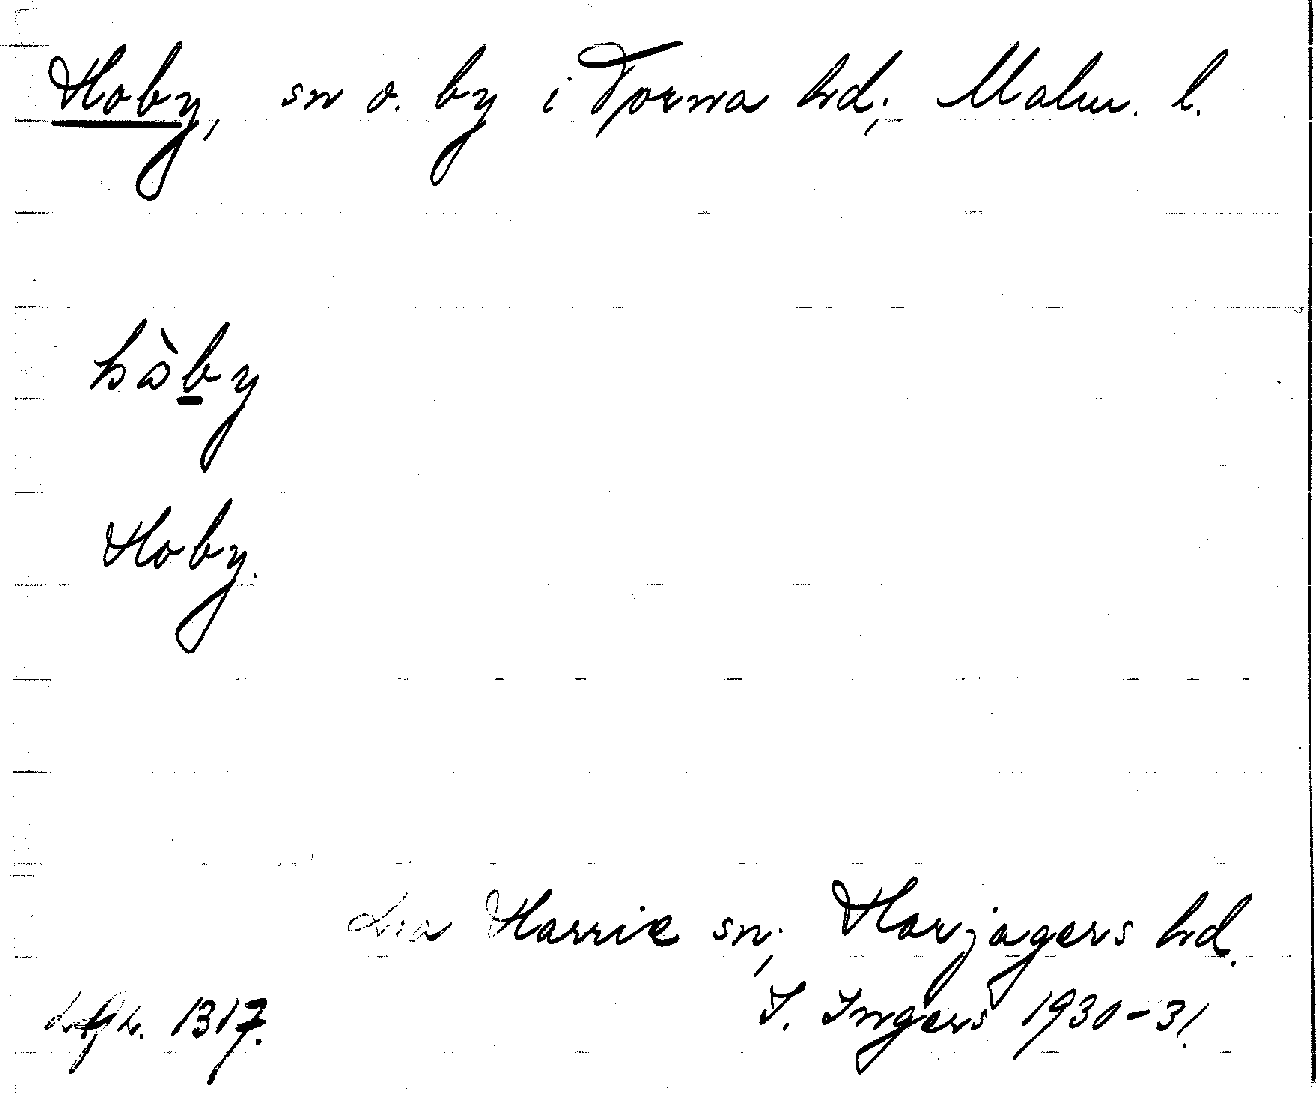 Hoby, sn o. by i Torna hd; Malm. l.
hòby
Hoby.
Lra Harrie sn; Harjagers hd.
1317. I. Ingers 1930-31.